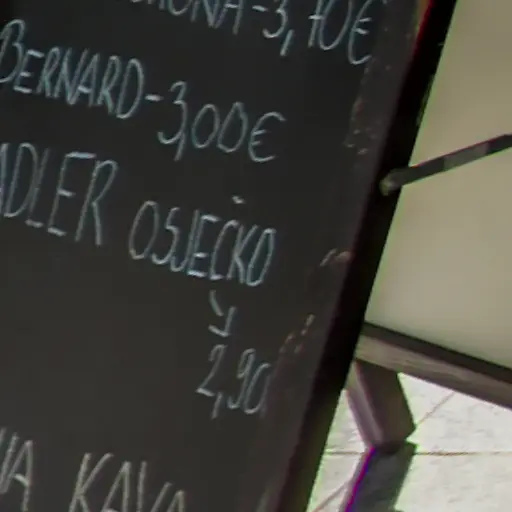 -3,70€
BERNARD-3,00€
ADLER OSJEČKO
↘
2,90
KAVA